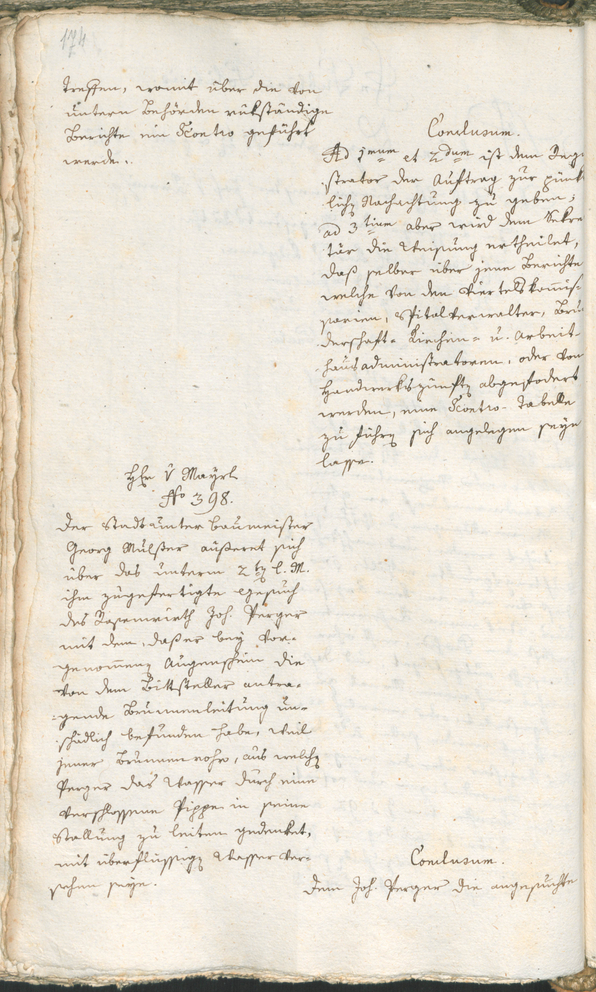 174
treffen, womit über die von
untern Behörden rükständige
Berichte ein Scontro geführt
werde.
Conclusum.
Ad 1mum et 2dum ist dem Regi
strator der Auftrag zur pünkt
lichen Nachachtung zu geben;
ad 3tium aber wird dem Sekre
tär die Weisung ertheilet,
daß selber über jene Berichte
welche von den Viertelskommis
sarien, Spitalverwalter, Bru
derschaft- Kirchen- u. Arbeit-
hausadministratoren, oder von
Handwerkszünften abgefodert
werden, eine Scontro-Tabelle
zu führen sich angelegen seyn
lasse.
Hr. v Mayrl
No 398.
Der Stadtunterbaumeister
Georg Mulser äußeret sich
über das unterm 2ten l. M.
ihm zugefertigte Gesuch
des Rosenwirth Joh. Perger
mit dem, daß er bey vor-
genommenen Augenschein die
von dem Bittsteller antra-
gende Brunnenleitung un-
schädlich befunden habe, weil
jener Brunnenrohr, aus welchen
Perger das Wasser durch eine
verschlossene Pippe in seine
Stallung zu leiten gedenket,
mit überflüssigen Wasser ver-
sehen seye.
Conclusum.
Dem Joh. Perger die angesuchte